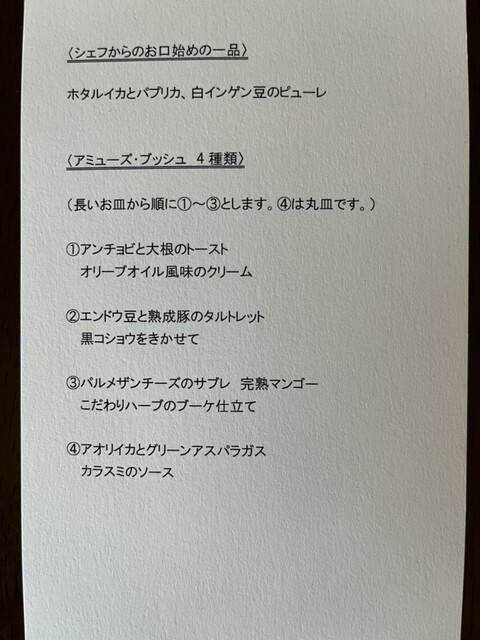 〈シェフからのお口始めの一品〉
ホタルイカとパプリカ、白インゲン豆のピューレ
〈アミューズ・ブッシュ 4種類〉
(長いお皿から順に①~③とします。④は丸皿です。)
①アンチョビと大根のトースト
オリーブオイル風味のクリーム
②エンドウ豆と熟成豚のタルトレット
黒コショウをきかせて
③パルメザンチーズのサブレ 完熟マンゴー
こだわりハーブのブーケ仕立て
④アオリイカとグリーンアスパラガス
カラスミのソース